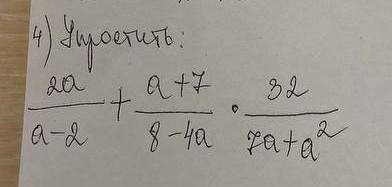 4) Упростить:
2a/(a-2) + (a+7)/(8-4a) · 32/(7a+a²)